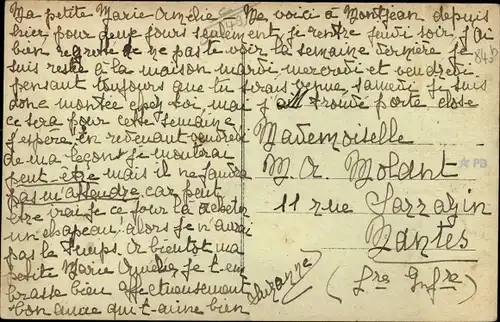 Ma petite Marie Amélie Me voici à Montjean depuis
hier pour deux jours seulement, je rentre jeudi soir, j'ai
bien regretté de ne pas te voir la semaine dernière je
suis resté à la maison mardi, mercredi et vendredi
pensant toujours que tu serais venue, samedi je suis
donc montée chez toi, mai j'ai trouvé porte close
ce sera pour cette semaine
j'espère, en revenant vendredi
de ma leçon je monterai
peut-être mais il ne faudra
pas m'attendre car peut
être irai-je ce jour là acheter
un chapeau, alors je n'aurai
pas le temps. A bientôt ma
petite Marie Amélie je t'em
brasse bien affectueusement
Ton amie qui t'aime bien
Suzanne
Mademoiselle
M. A. Molant
11 rue Sarrazin
Nantes
(Lre Infre)
PB